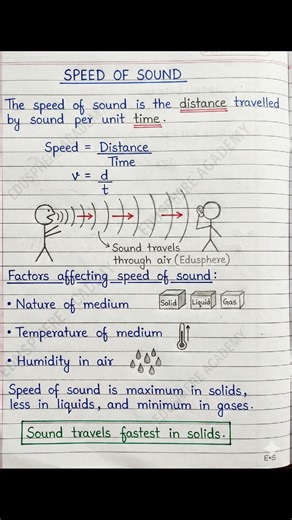 SPEED OF SOUND
The speed of sound is the distance travelled
by sound per unit time.
Speed = Distance
Time
v = d
t
Sound travels
through air (Edusphere)
Factors affecting speed of sound:
• Nature of medium
Solid Liquid Gas
• Temperature of medium
• Humidity in air
Speed of sound is maximum in solids,
less in liquids, and minimum in gases.
Sound travels fastest in solids.
EDUSPHERE ACADEMY
EDUSPHERE ACADEMY
EDUSPHERE ACADEMY